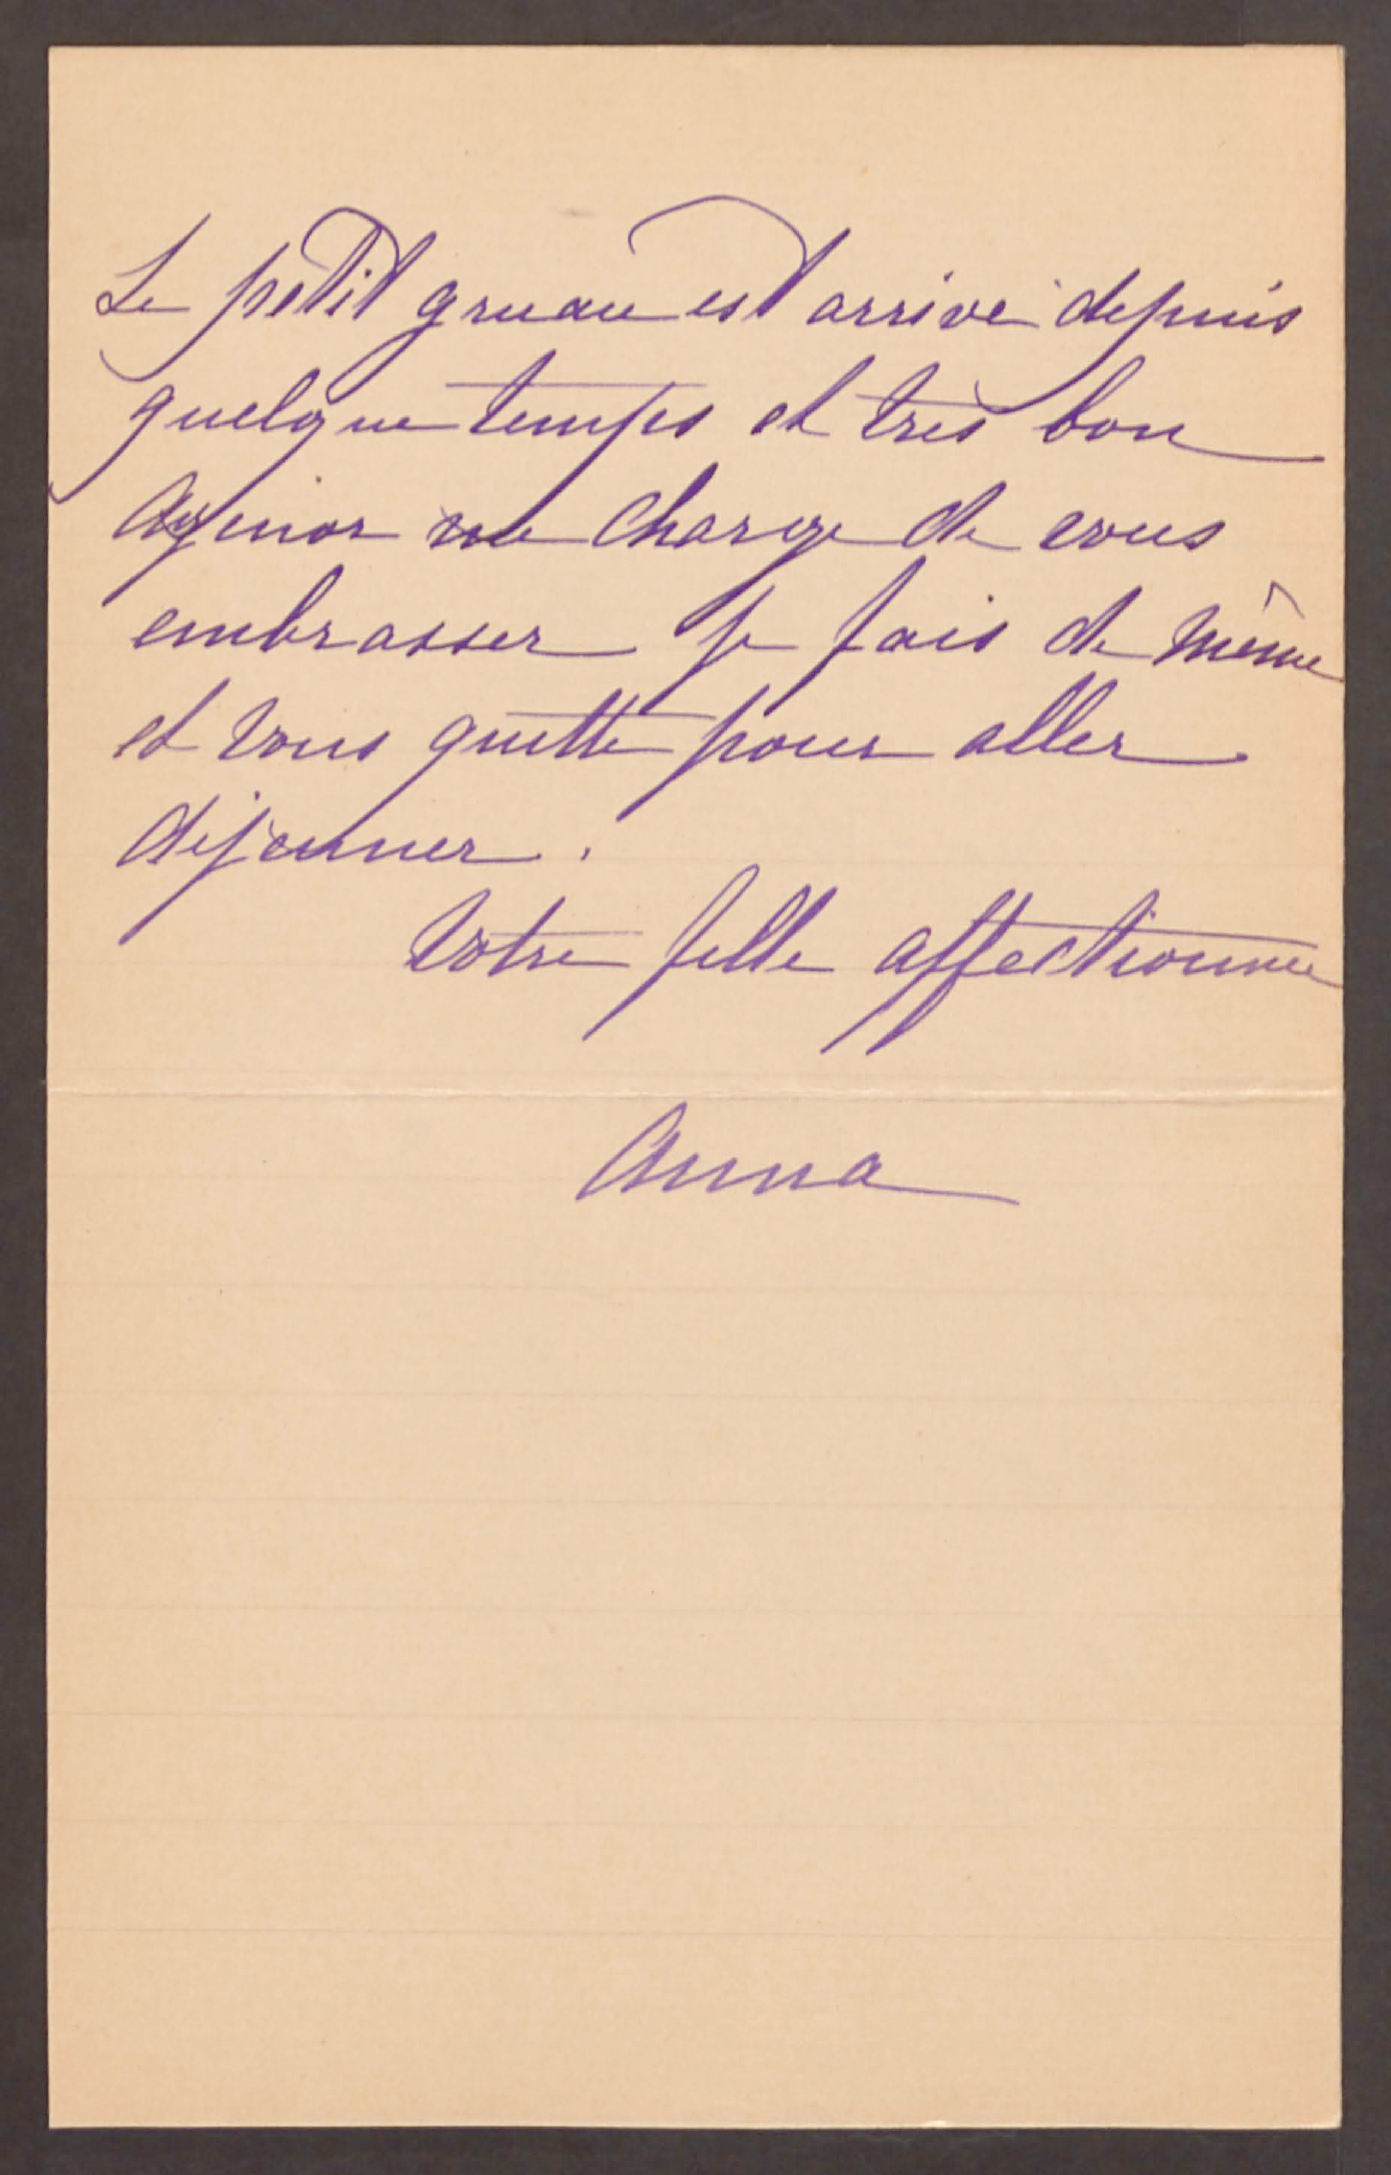 Le petit gruau est arrivé depuis
quelque temps et très bon
Agénor me charge de vous
embrasser je fais de même
et vous quitte pour aller
déjeuner.
Votre fille affectionnée
Anna